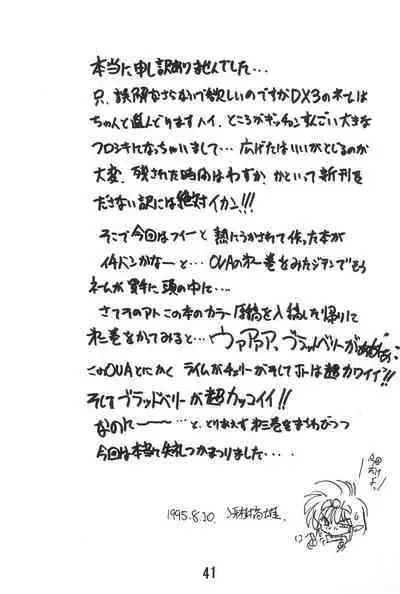 本当に申し訳ありませんでした…
只、誤解なさらないで欲しいのですがDX3のネームは
ちゃんと進んどりますハイ、ところがギッチョンすんごい大きな
フロシキになっちゃいまして…広げたはいいがとじるのが
大変、残された時間はわずか、かといって新刊を
ださない訳には絶対イカン!!!
そこで今回はフイーと熱にうかされて作った本が
イキドンかなーと…OVAの第一巻をみたジテンでもう
ネームが勝手に頭の中に…
さてそのアトこの本のカラー原稿を入稿した帰りに
第二巻をかてみると…ウァアァア、ブラッドベリーがあぁぁぁ
このOVAとにかくライムがチェリーがそしてティーは超カワイイ!!
そしてブラッドベリーが超カッコイイ!!
なのにーと、とりあえず第三巻をまちわびつつ
今回は本当に失礼つかまつりました…
1995.8.10.
今回だけよっ
41